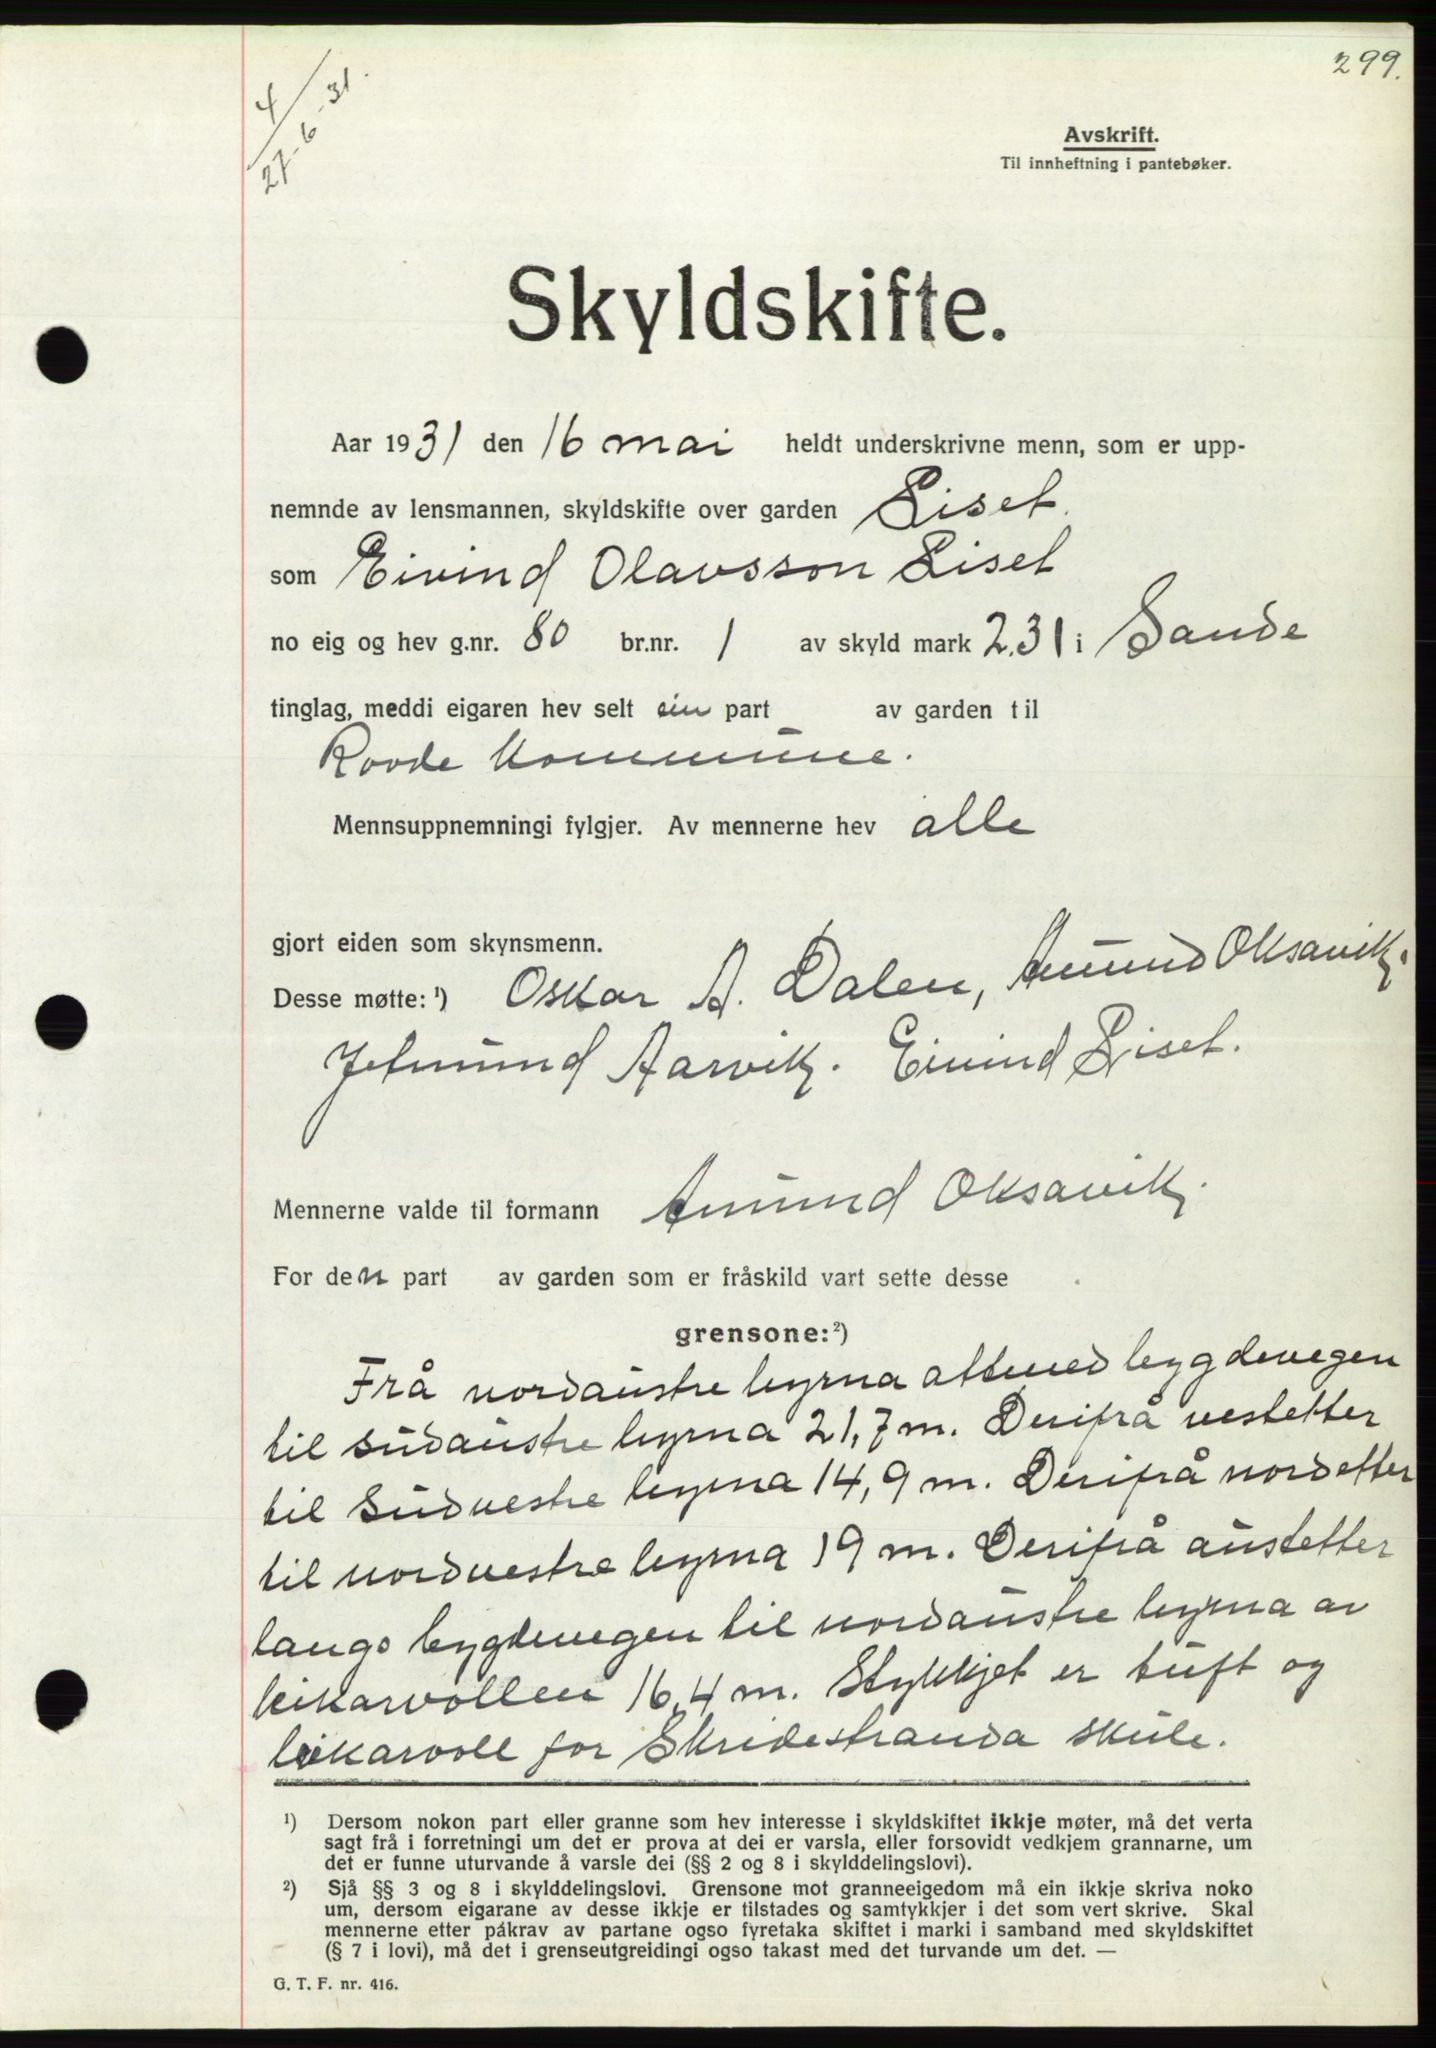 299.
4
27-6-31.
Avskrift.
Til innheftning i pantebøker.
Skyldskifte.
Aar 1931 den 16 mai heldt underskrivne menn, som er upp-
nemnde av lensmannen, skyldskifte over garden Liset.
som Eivind Olavsson Liset
no eig og hev g.nr. 80 br.nr. 1 av skyld mark 2.31 i Sande
tinglag, meddi eigaren hev selt ein part av garden til
Rovde Kommune.
Mennsuppnemningi fylgjer. Av mennerne hev alle
gjort eiden som skynsmenn.
Desse møtte: ¹) Oskar A. Dalen, Amund Oksavik.
Jetmund Aarvik. Eivind Liset.
Mennerne valde til formann Amund Oksavik.
For den part av garden som er fråskild vart sette desse
grensone: ²)
Frå nordaustre hyrna attmed bygdevegen
til sudaustre hyrna 21,7 m. Derifrå vestetter
til sudvestre hyrna 14,9 m. Derifrå nordetter
til nordvestre hyrna 19 m. Derifrå austetter
langs bygdevegen til nordaustre hyrna av
leikarvollen 16,4 m. Stykkjet er tuft og
leikarvoll for Skredestranda skule.
¹) Dersom nokon part eller granne som hev interesse i skyldskiftet ikkje møter, må det verta
sagt frå i forretningi um det er prova at dei er varsla, eller forsovidt vedkjem grannarne, um
det er funne uturvande å varsle dei (§§ 2 og 8 i skylddelingslovi).
²) Sjå §§ 3 og 8 i skylddelingslovi. Grensone mot granneeigedom må ein ikkje skriva noko
um, dersom eigarane av desse ikkje er tilstades og samtykkjer i det som vert skrive. Skal
mennerne etter påkrav av partane ogso fyretaka skiftet i marki i samband med skyldskiftet
(§ 7 i lovi), må det i grenseutgreidingi ogso takast med det turvande um det. —
G. T. F. nr. 416.